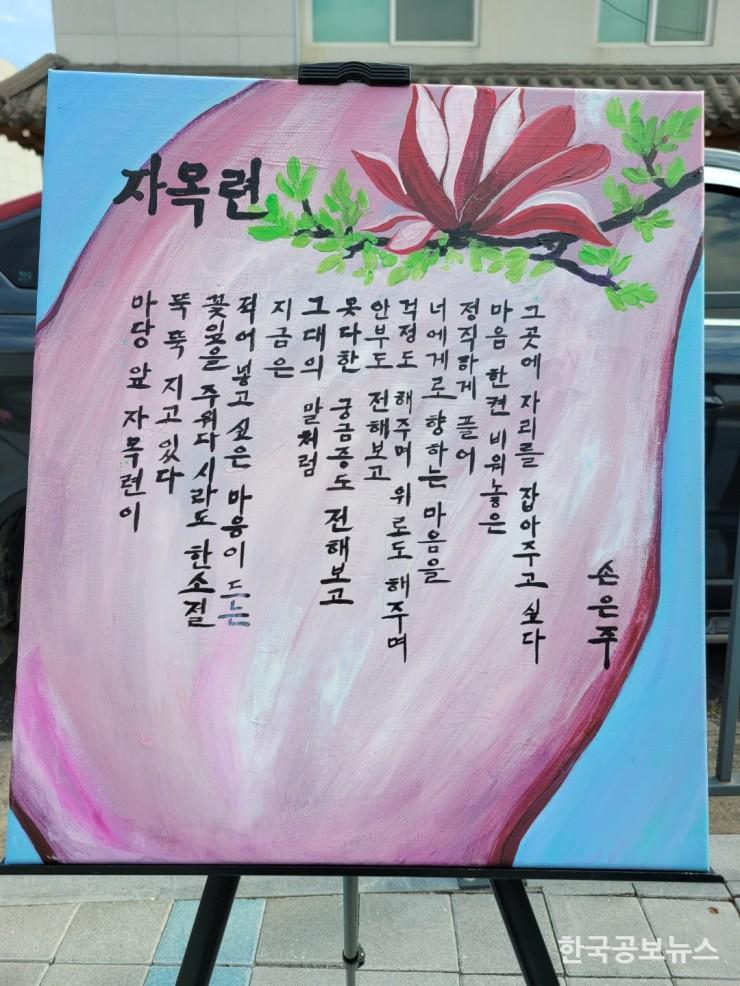 자목련
마당 앞 자목련이
뚝뚝 지고 있다
꽃잎을 주워다 시라도 한소절
적어 넣고 싶은 마음이 드는
지금은
그대의 말처럼
못다한 궁금증도 전해보고
안부도 전해보고
걱정도 해주며 위로도 해주며
너에게로 향하는 마음을
정직하게 풀어
마음 한켠 비워놓은
그곳에 자리를 잡아주고 싶다
손은주
한국공보뉴스